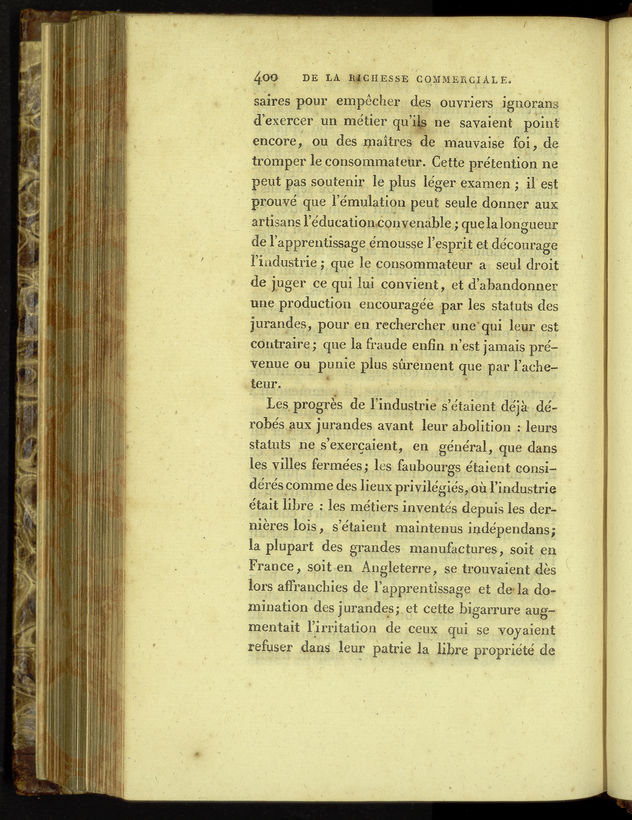 400 DE LA RICHESSE COMMERCIALE.
saires pour empêcher des ouvriers ignorans
d'exercer un métier qu'ils ne savaient point
encore, ou des maîtres de mauvaise foi, de
tromper le consommateur. Cette prétention ne
peut pas soutenir le plus léger examen ; il est
prouvé que l'émulation peut seule donner aux
artisans l'éducation convenable ; que la longueur
de l'apprentissage émousse l'esprit et décourage
l'industrie ; que le consommateur a seul droit
de juger ce qui lui convient, et d'abandonner
une production encouragée par les statuts des
jurandes, pour en rechercher une qui leur est
contraire ; que la fraude enfin n'est jamais pré-
venue ou punie plus sûrement que par l'ache-
teur.
Les progrès de l'industrie s'étaient déjà dé-
robés aux jurandes avant leur abolition : leurs
statuts ne s'exerçaient, en général, que dans
les villes fermées ; les faubourgs étaient consi-
dérés comme des lieux privilégiés, où l'industrie
était libre : les métiers inventés depuis les der-
nières lois, s'étaient maintenus indépendans ;
la plupart des grandes manufactures, soit en
France, soit en Angleterre, se trouvaient dès
lors affranchies de l'apprentissage et de la do-
mination des jurandes ; et cette bigarrure aug-
mentait l'irritation de ceux qui se voyaient
refuser dans leur patrie la libre propriété de